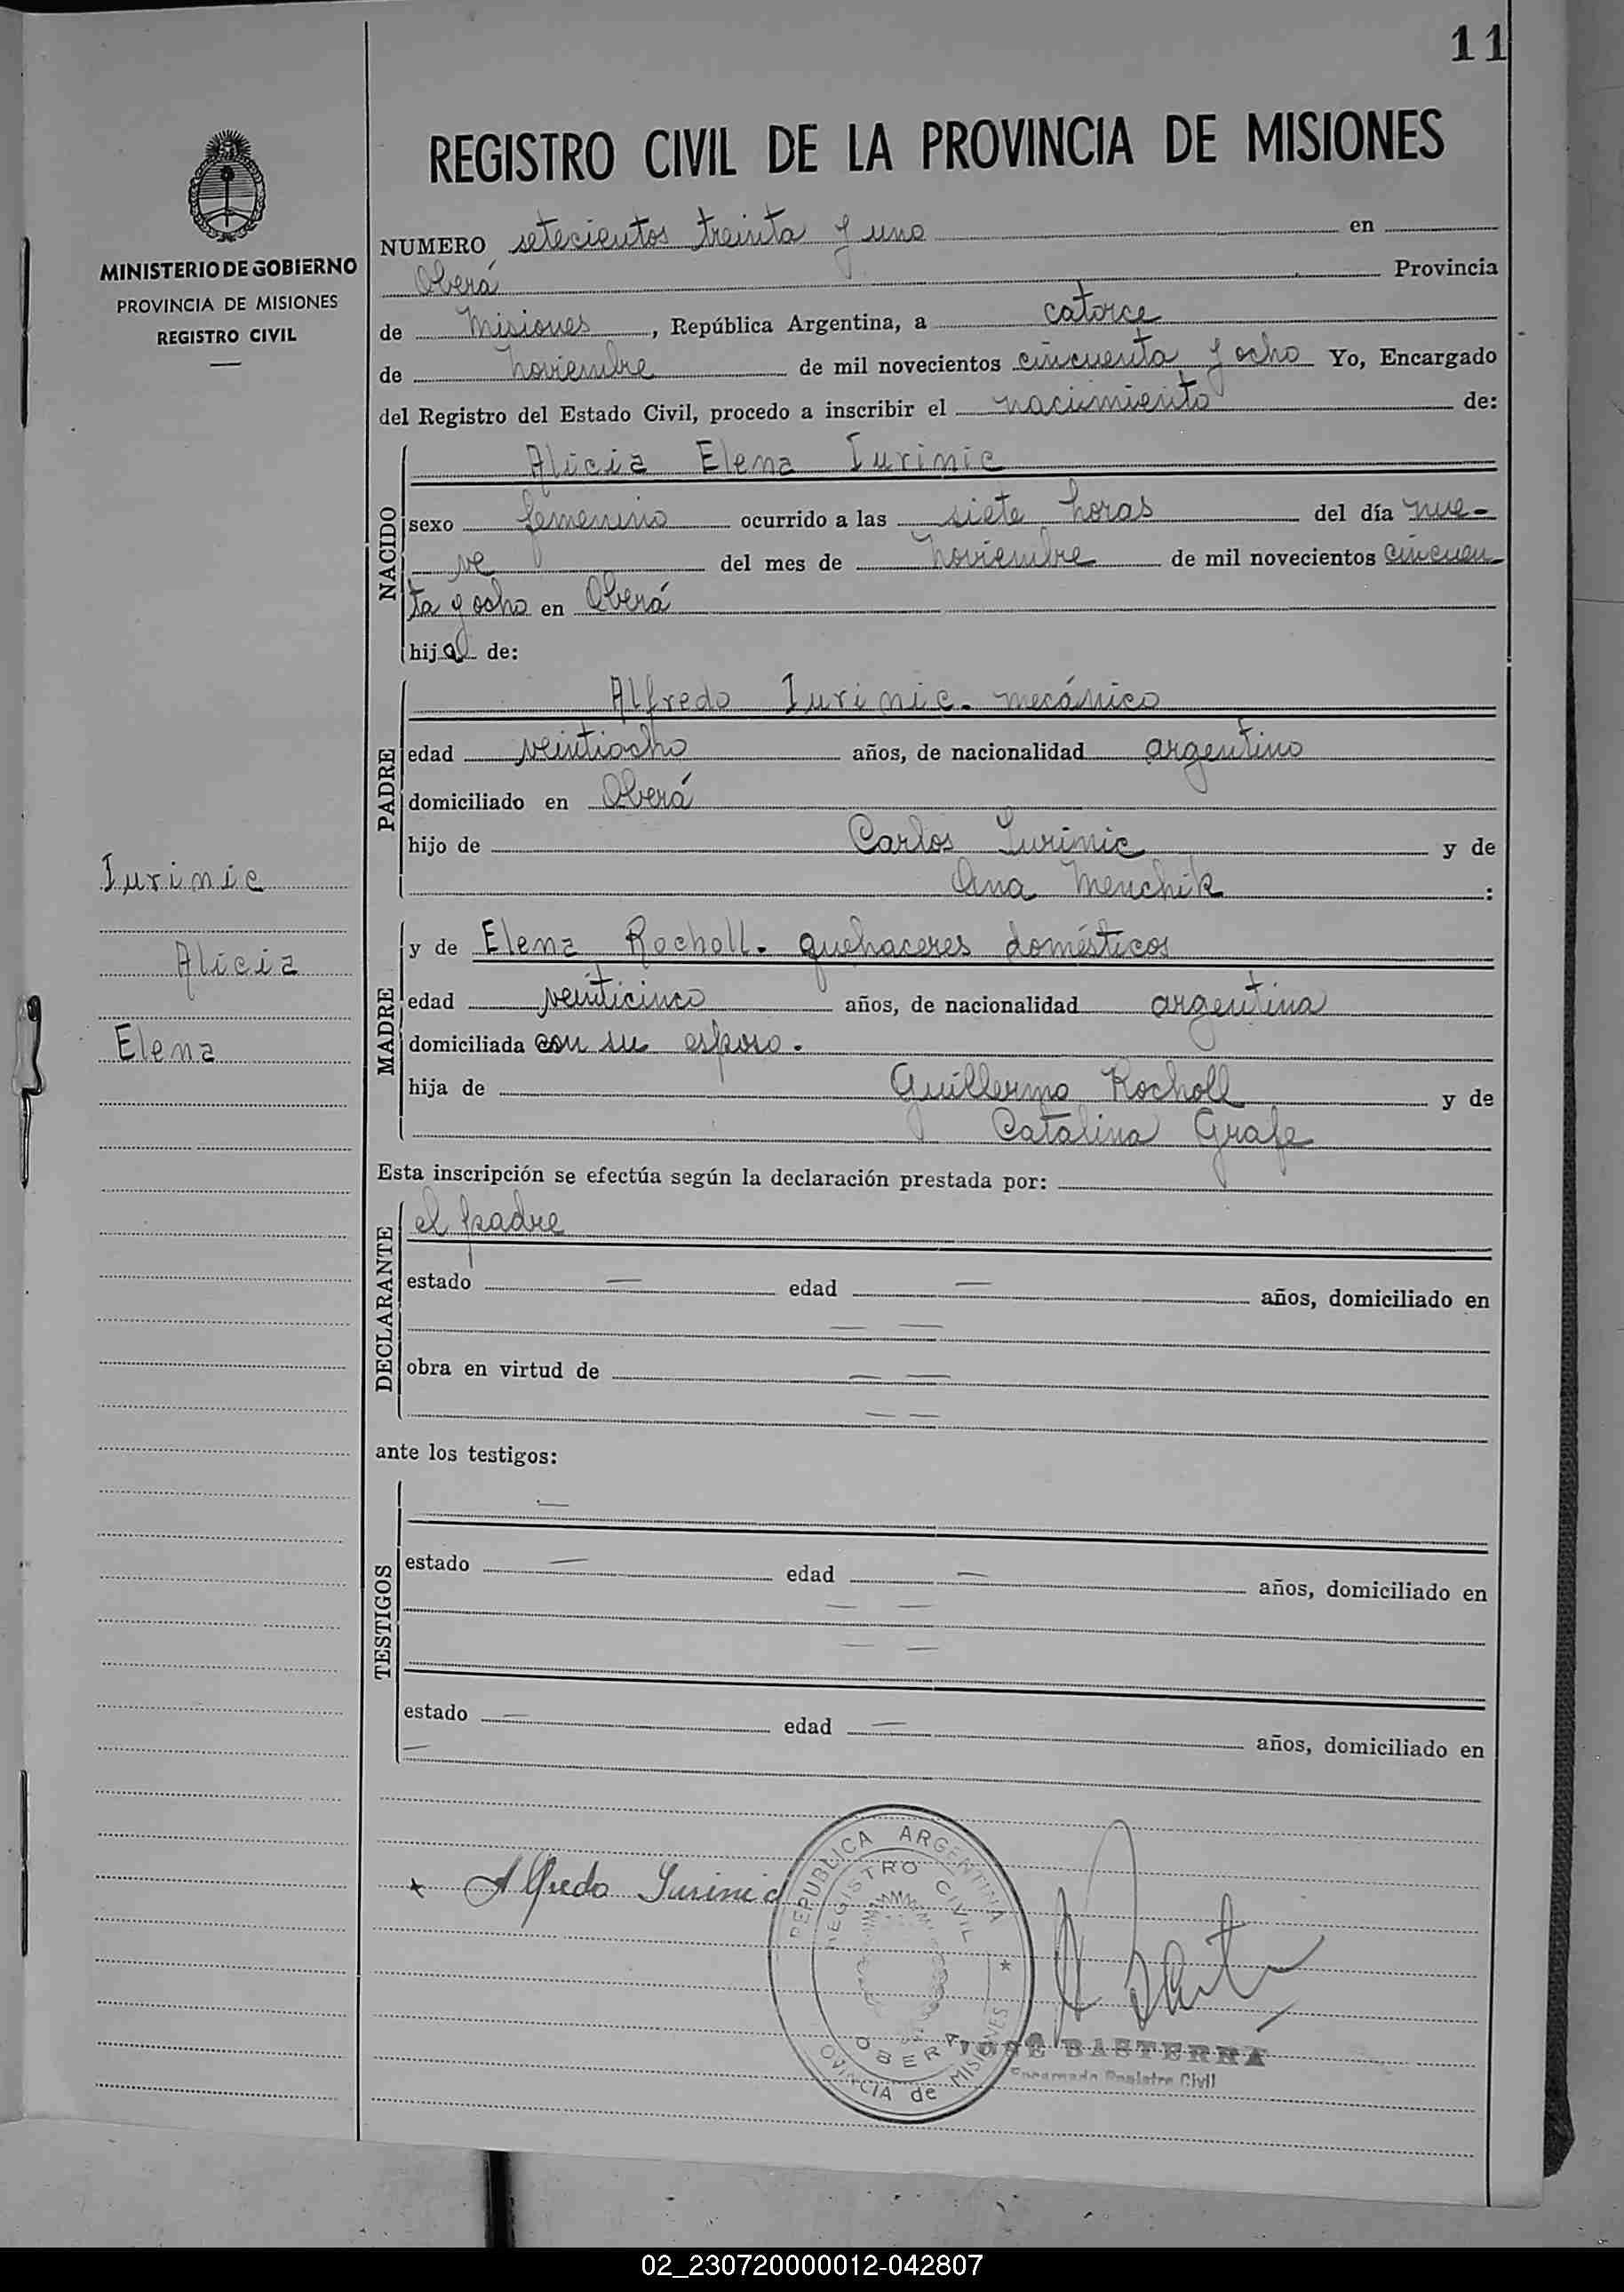 11
REGISTRO CIVIL DE LA PROVINCIA DE MISIONES
MINISTERIO DE GOBIERNO
PROVINCIA DE MISIONES
REGISTRO CIVIL
NUMERO setecientos treinta y uno en
Oberá Provincia
de Misiones, República Argentina, a catorce
de noviembre de mil novecientos cincuenta y ocho Yo, Encargado
del Registro del Estado Civil, procedo a inscribir el nacimiento de:
NACIDO
Alicia Elena Iurinic
sexo femenino ocurrido a las siete horas del día nue-
ve del mes de noviembre de mil novecientos cincuen
ta y ocho en Oberá
hija de:
PADRE
Alfredo Iurinic - mecánico
edad veintiocho años, de nacionalidad argentino
domiciliado en Oberá
hijo de Carlos Iurinic y de
Ana Menchik :
Iurinic
Alicia
Elena
MADRE
y de Elena Rocholl - quehaceres domésticos
edad veinticinco años, de nacionalidad argentina
domiciliada con su esposo.
hija de Guillermo Rocholl y de
Catalina Grafe
Esta inscripción se efectúa según la declaración prestada por:
DECLARANTE
el padre
estado — edad — años, domiciliado en
— —
obra en virtud de — —
— —
ante los testigos:
TESTIGOS
—
estado — edad — años, domiciliado en
— —
— —
estado — edad — años, domiciliado en
—
Alfredo Iurinic
REPUBLICA ARGENTINA
REGISTRO CIVIL
OBERA
PROVINCIA de MISIONES
JOSÉ BASTERRA
Encargado Registro Civil
02_230720000012-042807